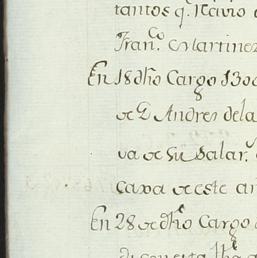 tantos q. Recivio
Fran.co Martinez
En 18 dho Cargo 130
de D. Andres de la
va de su Salar.
caxa de este
En 28 de dho Cargo